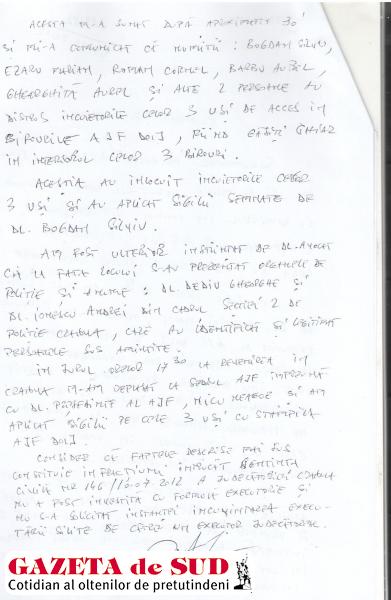 ACESTA M-A SUNAT DUPĂ APROXIMATIV 30'
ȘI MI-A COMUNICAT CĂ NUMIȚII: BOGDAN SILVIU,
EZARU MARIAN, ROMAN CORNEL, BARBU AUREL,
GHEARGHIȚĂ AUREL ȘI ALTE 2 PERSOANE AU
DISTRUS ÎNCUIETORILE CELOR 3 UȘI DE ACCES ÎN
BIROURILE AJF DOLJ, FIIND GĂSIȚI CHIAR
ÎN INTERIORUL CELOR 3 BIROURI.
ACEȘTIA AU ÎNLOCUIT ÎNCUIETORILE CELOR
3 UȘI ȘI AU APLICAT SIGILII SEMNATE DE
DL. BOGDAN SILVIU.
AM FOST ULTERIOR ÎNȘTIINȚAT DE DL. AVOCAT
CĂ LA FAȚA LOCULUI S-AU PREZENTAT ORGANELE DE
POLIȚIE ȘI ANUME: DL. DEDIU GHEORGHE ȘI
DL. IONESCU ANDREI DIN CADRUL SECȚIEI 2 DE
POLIȚIE CRAIOVA, CARE AU IDENTIFICAT ȘI LEGITIMAT
PERSOANELE SUS AMINTITE.
ÎN JURUL OREI 17 30 LA REVENIREA ÎN
CRAIOVA M-AM DEPLASAT LA SEDIUL AJF ÎMPREUNĂ
CU DL. PREȘEDINTE AL AJF, NICU NEAGOE ȘI AM
APLICAT SIGILII PE CELE 3 UȘI CU ȘTAMPILA
AJF DOLJ.
CONSIDER CĂ FAPTELE DESCRISE MAI SUS
CONSTITUIE INFRACȚIUNI ÎNTRUCÂT SENTINȚA
CIVILĂ NR 146 2012 A JUDECĂTORIEI CRAIOVA
NU A FOST ÎNVESTITĂ CU FORMULĂ EXECUTORIE ȘI
NU S-A SOLICITAT INSTANȚEI ÎNCUVIINȚAREA EXECU-
TĂRII SILITE DE CĂTRE UN EXECUTOR JUDECĂTORESC.
GAZETA de SUD
Cotidian al oltenilor de pretutindeni